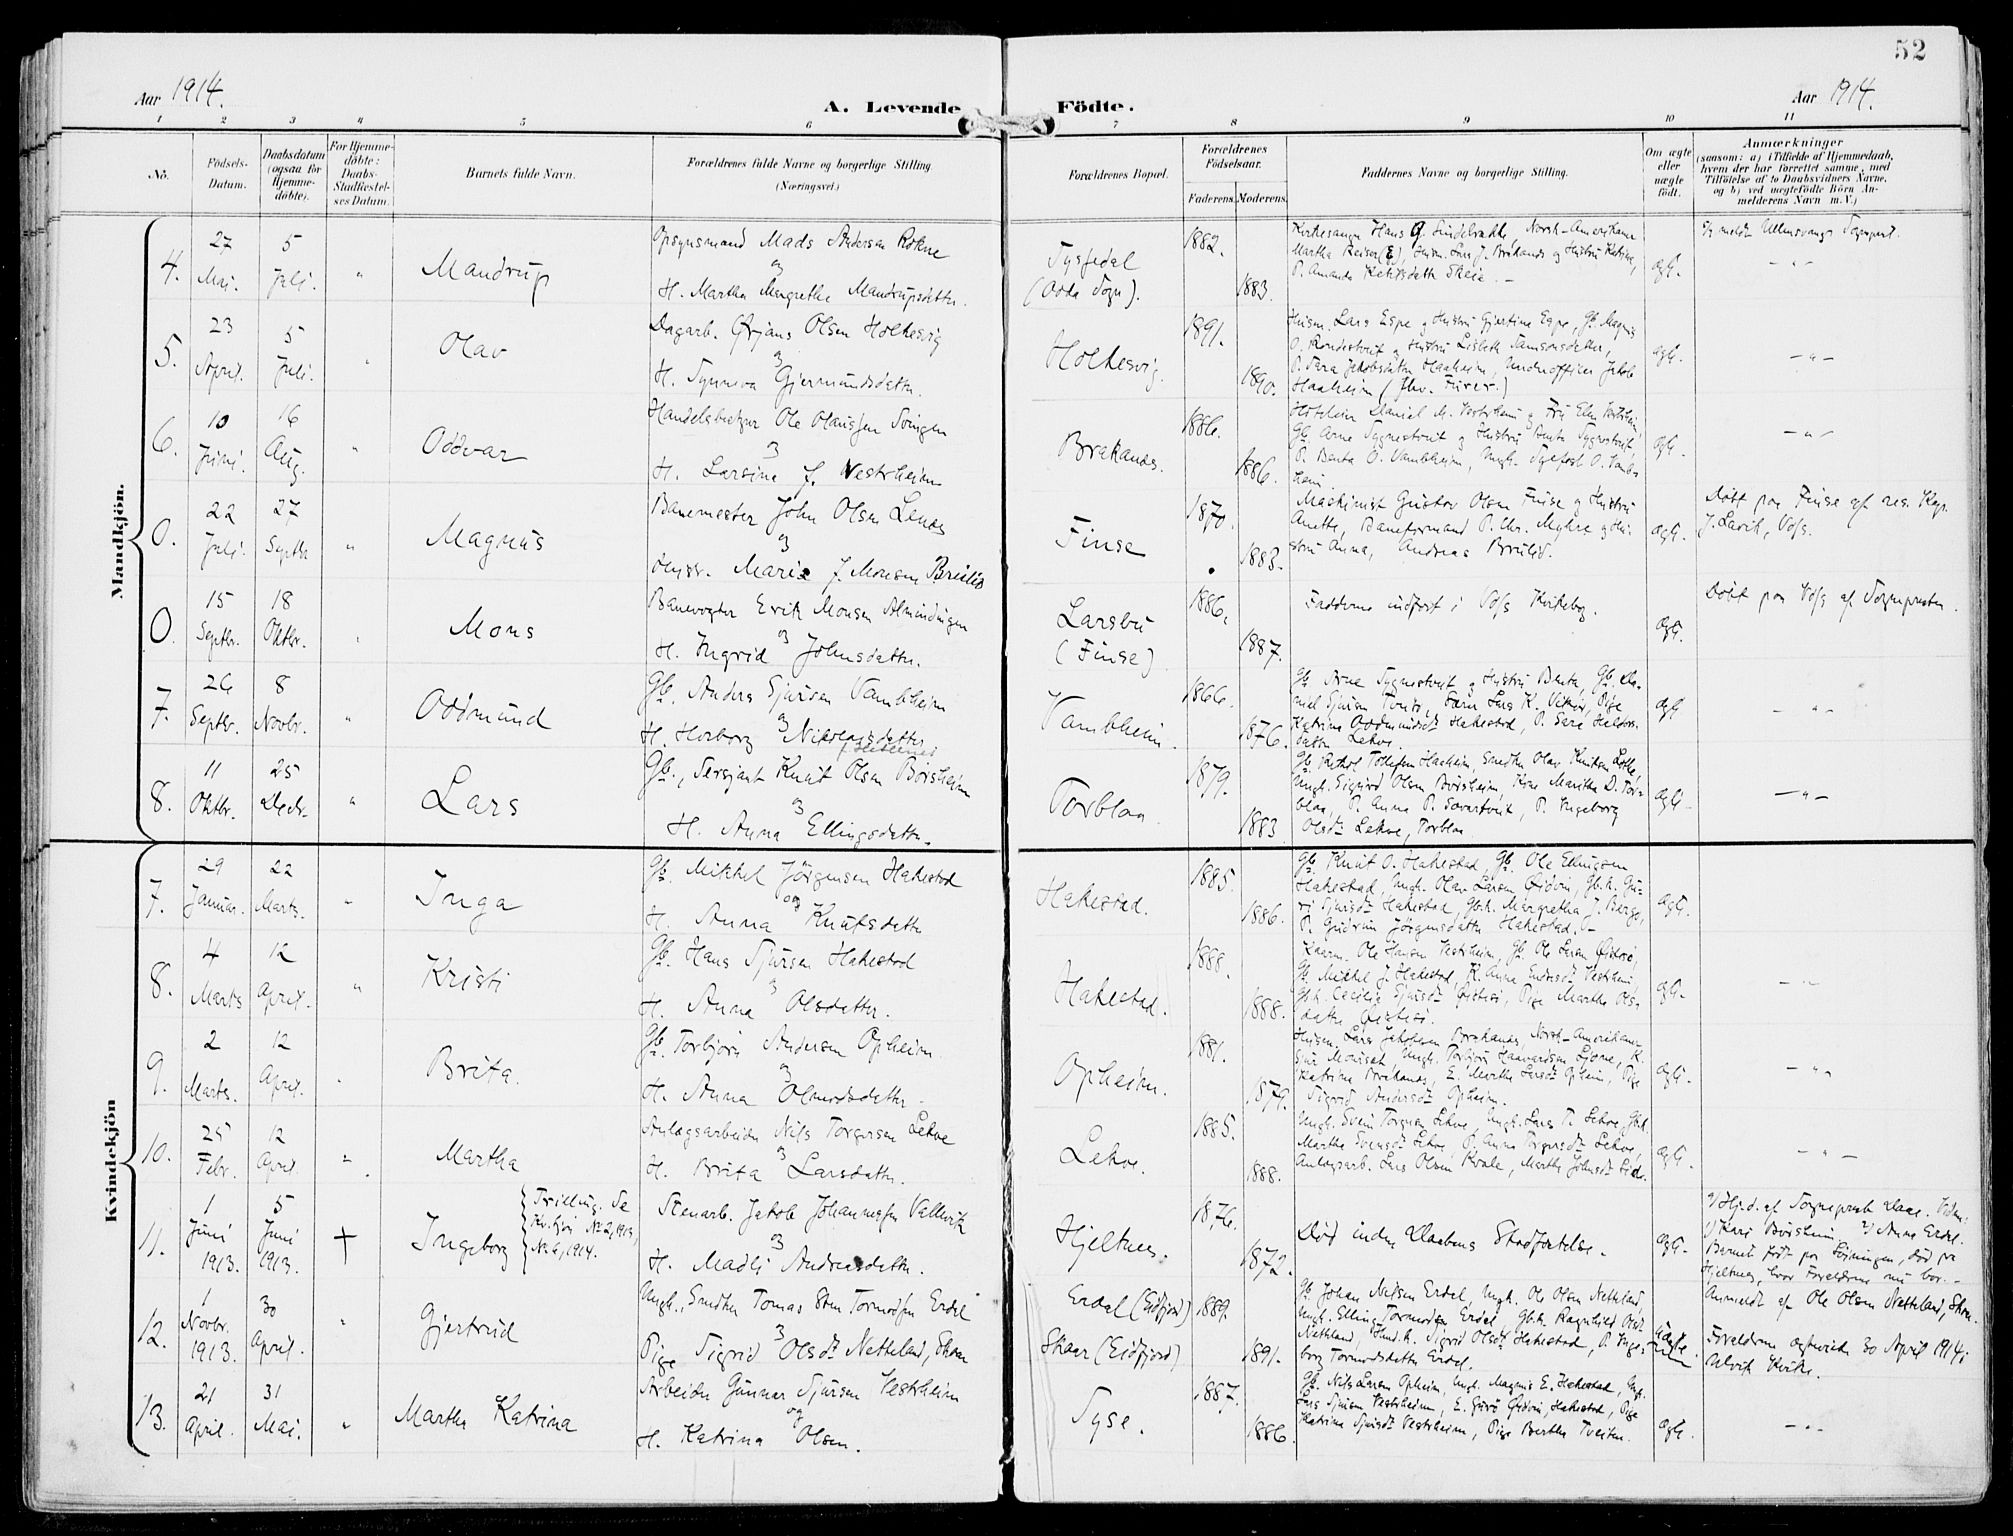 52
Aar 1914.
A. Levende Födte.
Aar 1914.
1 2 3 4 5 6 7 8 9 10 11
No.
Födsels-
Datum.
Daabsdatum
(ogsaa for
Hjemme-
döbte).
For Hjemme-
döbte:
Daabs-
Stadfæstel-
ses Datum.
Barnets fulde Navn.
Forældrenes fulde Navne og borgerlige Stilling
(Næringsvei.)
Forældrenes Bopæl.
Forældrenes
Födselsaar.
Faderens. Moderens.
Faddernes Navne og borgerlige Stilling.
Om ægte
eller
uægte
födt.
Anmærkninger
(saasom: a) i Tilfælde af Hjemmedaab,
hvem der har forrettet samme, med
Tilföielse af to Daabsvidners Navne,
og b) ved uægtefödte Börn An-
melderens Navn m. V.)
Mandkjön.
4.
27
Mai.
5
Juli.
"
Mandrup
Opsynsmand Mads Andersen Rokne
og
H. Martha Margrethe Mandrupsdatter.
Tyssedal
(Odda Sogn).
1882.
1883.
Kirkesanger Hans Norsk-Amerikaner
Martha Reiser, Husm. Lars J. Brakanes og Hustru Katrina,
P. Amanda Skeie. -
ægt.
meldt Ullensvangs Sognepr.
- " -
5.
23
April.
5
Juli.
"
Olav
Dagarb. Ørjans Olsen Holkesvig
og
H. Synneva Gjermundsdatter
Holkesvig.
1891.
1890.
Husm. Lars Espe og Hustru Gjertina Espe, Gb. Magnus
O. Rondestveit og Hustru Lisbeth Samsonsdatter,
P. Sara Jakobsdatter Haaheim, Underofficer Jakob
Haaheim
ægt.
- " -
6.
10
Juni.
16
Aug.
"
Oddvar
Handelsbetjen Ole Olaussen Soingen
og
H. Larsina f. Vestrheim
Brakanes.
1886.
1886.
Hoteleier Daniel M. Vestrheim og Fru Elen Vestrheim,
Gb. Arne Sygnestveit og Hustru Berta Sygnestveit,
P. Berta O. Vambheim, Ungk. O. Vamb-
heim
ægt.
- " -
0.
22
Juli.
27
Septbr
"
Magnus
Banemester John Olsen Lenes
og
Hustr. Marie f. Monsen Breilid
Finse
1870.
1883.
Maskinist Gustav Olsen Finse og Hustru
Anette, Baneformand P. Chr. Myhre og Hu-
stru Anna, Andreas Breilid.
ægt.
Döbt paa Finse af res. Kap.
J. Lavik, Voss.
0.
15
Septbr.
18
Oktbr.
"
Mons
Banevogter Erik Monsen Almindingen
og
H. Ingrid Johnsdatter.
Larsbu
(Finse)
1886.
1887.
Fadderne indfört i Voss Kirkebog.
ægt.
Döbt paa Voss af Sognepresten.
7.
26
Septbr.
8
Novbr.
"
Oddmund
Gb. Anders Sjursen Vambheim
og
H. Herborg Nikolausdatter
Vambheim.
1866.
1876.
Gb. Arne Sygnestveit og Hustru Berta, Gb. Da-
niel Sjursen Tveito, Særer Lars K. Vikør, Pige
Katrina Oddmundsdt Hakestad, P. Sara Haldors-
datter Lekve.
ægt
- " -
8.
11
Oktbr.
25
Decbr.
"
Lars
Gb., Sersjant Knut Olsen Børsheim
og
H. Anna Ellingsdatter.
Torblaa
1879.
1883
Gb. Ketil Tollefsen Haaheim, Smedh Olav Knutsen Lothe,
Ungk. Sigurd Olsen Børsheim, Kone Maritha D. Tor-
blaa, P. Anna P. Svartveit, P. Ingeborg
Olsdt Lekve, Torblaa.
ægt.
- " -
Kvindekjön
7.
29
Januar.
22
Marts.
"
Inga
Gb. Mikkel Jörgensen Hakestad
og
H. Anna Knutsdatter
Hakestad.
1885.
1886.
Gb. Knut O. Hakestad, Gb. Ole Ellingsen
Hakestad, Ungk. Olav Larsen Øidvin, Gb.k. Gu-
ri Sjursdt Hakestad, Gb.k. Margretha J. Berge,
P. Gudrun Jörgensdatter Hakestad. -
ægt.
8.
4
Marts
12
April.
"
Kristi
Gb. Hans Sjursen Hakestad
og
H. Anna Olsdatter.
Hakestad.
1888.
1888.
Kaarm. Ole Hansen Vestrheim, Gb. Ole Larsen Øistesö,
Gb. Mikkel J. Hakestad, K. Anna Endresdt Vestrheim,
Gb.k. Cecilie Sjursdt Øistesö, Pige Martha Ols-
datter Øistesö.
ægt.
- " -
9.
2
Marts.
12
April.
"
Brita.
Gb. Torbjörn Andersen Opheim.
og
H. Anna Olmodsdatter.
Opheim.
1881.
1879.
Husm. Lars Jakobsen Brakanes, Norsk-Amerikaner
Sjur Moriset, Ungk. Torbjörn Haavardsen Ljone, K.
Katrina Brakanes, E. Martha Larsdt Opheim, Pige
Sigrid Andersdt Opheim.
ægt.
- " -
10.
25
Febr.
12
April.
"
Martha
Anlægsarbeider Nils Torgersen Lekve
og
H. Brita Larsdatter.
Lekve.
1885.
1888.
Ungk. Svein Torgersen Lekve, Ungk. Lars T. Lekve, Gb.k.
Martha Svensdt Lekve, P. Anna Torgersdt Lekve,
Anlægsarb. Lars Olsen Kvale, Martha Johnsdt
ægt.
- " -
11.
1
Juni
1913.
5
Juni
1913.
+
Ingeborg
Trilling. Se
Kv.kjön No 2, 1913,
No 6, 1914.
Stenarb. Jakob Johannessen Vallevik
og
H. Madli Andreasdatter.
Hjeltnes.
1876.
1872.
Död inden Daabens Stadfæstelse.
ægt.
Hj.d. af Sogneprest Daae. Vidner:
1) Kari Börsheim 2) Anna Erdal.
Barnet född paa Soiningen, död paa
Hjeltnes, hvor Forældrene nu bor. -
12.
1
Novbr.
1913.
30
April.
"
Gjertrud
Ungk., Smedh Tomas Sten Tormodsen Erdal
og
Pige Sigrid Olsdt Nætteland, Skaar
Erdal (Eidfjord)
Skaar (Eidfjord)
1889.
1891.
Gb. Johan Nilsen Erdal, Ungk. Ole Olsen Netteland,
Ungk. Elling Tormodsen Erdal, Gb.k. Ragnhild Olsdt
Netteland, Husm.k. Sigrid Olsdt Hakestad, P. Inge-
borg Tormodsdatter Erdal.
Uægte.
Anmeldt af Ole Olsen Netteland, Skaar.
Forældrene ægteviede 30 April 1914 i
Ulvik Kirke.
13.
21
April.
31
Mai.
"
Martha Katrina
Arbeider Gunnar Sjursen Vestrheim
og
H. Katrina Olsen.
Tyse.
1887.
1886.
Gb. Nils Larsen Opheim, Ungk. Magnus E. Hakestad, Ungk.
Lars Sjursen Vestrheim, E. Guro Øidvin, Hakestad, Pige
Katrina Sjursdt Vestrheim, Pige Bertha Tveiten.
ægt.
- " -